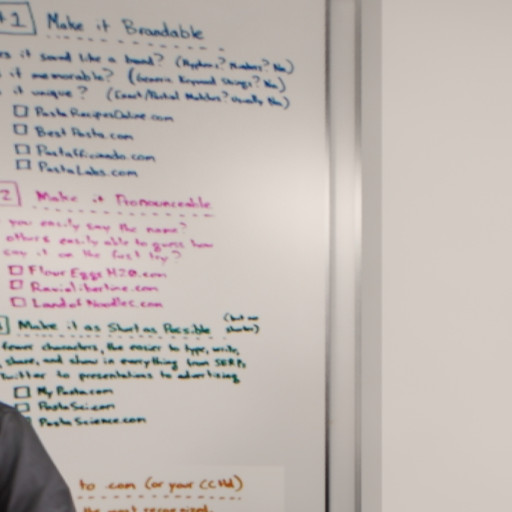 #1 Make it Brandable
it sound like a brand? (Hyphens? Numbers? No)
it memorable? (Generic Keyword Strings? No)
it unique? (Exact/Partial Matches? Usually No)
PastaRecipesOnline.com
BestPasta.com
Pastaficionado.com
PastaLabs.com
2 Make it Pronounceable
you easily say the name?
others easily able to guess how
say it on the first try?
FlourEggsH2O.com
Raviolibertine.com
LandofNoodles.com
Make it as Short as Possible (but no shorter)
fewer characters, the easier to type, write,
share, and show in everything from SERPs,
Twitter to presentations to advertising
MyPasta.com
PastaSci.com
PastaScience.com
to .com (or your CCTLD)
the most recognized,